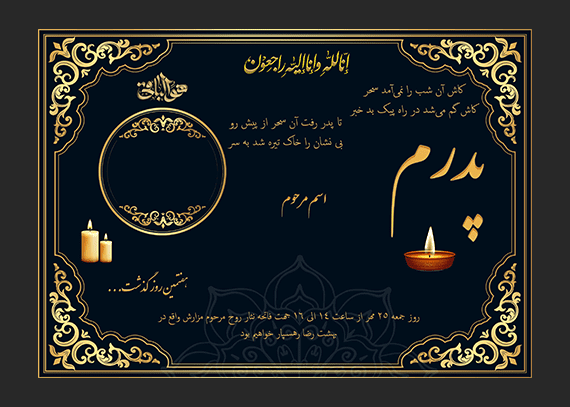 إنا لله وانا إليه راجعون
هوالباقی
کاش آن شب را نمی‌آمد سحر
کاش گم می‌شد در راه پیک بد خبر
تا پدر رفت آن سحر از پیش رو
بی نشان را خاک تیره شد به سر
پدرم
اسم مرحوم
هفتمین روز گذشت...
روز جمعه ۲۵ مهر از ساعت ۱۴ الی ۱۶ جهت فاتحه نثار روح مرحوم مزارش واقع در
بهشت رضا رهسپار خواهیم بود